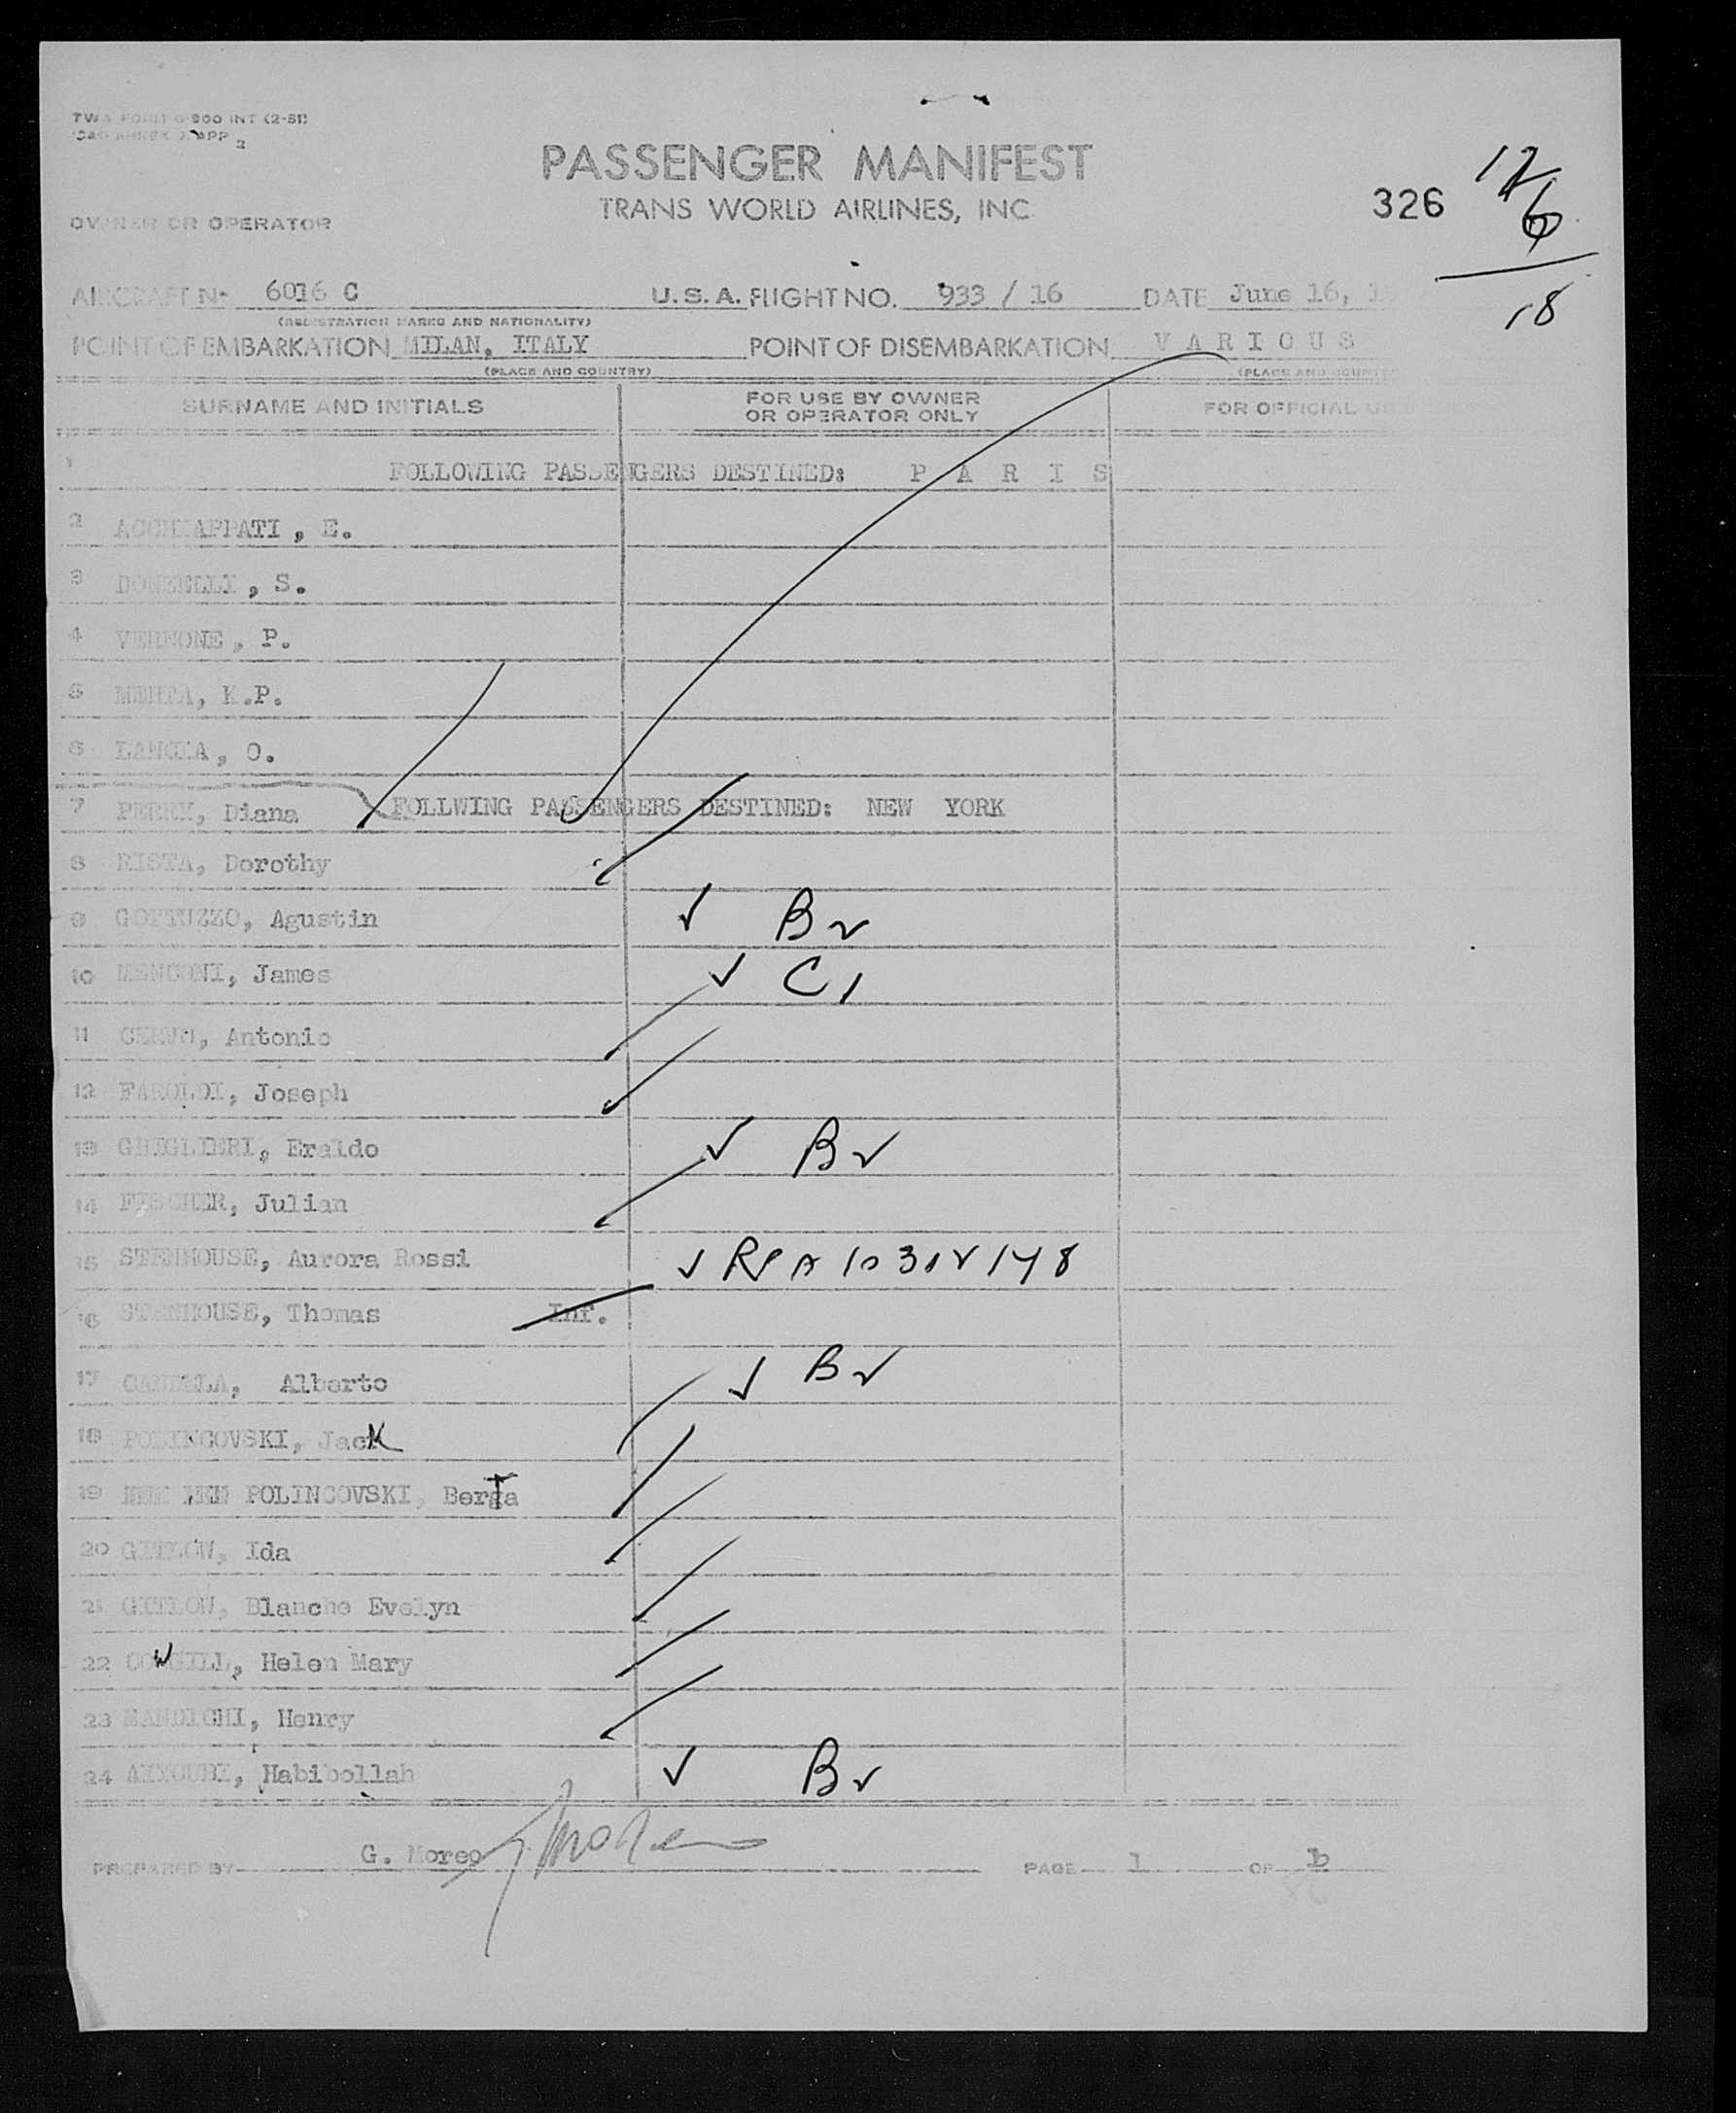 TWA FORM 0-900 INT (2-51)
ICAO ANNEX 9 APP 2
PASSENGER MANIFEST
TRANS WORLD AIRLINES, INC
326
12
6
18
OWNER OR OPERATOR
AIRCRAFT No 6016 C U.S.A. FLIGHT NO. 933 / 16 DATE June 16, 1
(REGISTRATION MARKS AND NATIONALITY)
POINT OF EMBARKATION MILAN, ITALY POINT OF DISEMBARKATION VARIOUS
(PLACE AND COUNTRY) (PLACE AND COUNT
SURNAME AND INITIALS FOR USE BY OWNER OR OPERATOR ONLY FOR OFFICIAL US
1 FOLLOWING PASSENGERS DESTINED: P A R I S
2 ACCHIAPPATI, E.
3 DONZELLI, S.
4 VERNONE, P.
5 MEHTA, K.P.
6 O.
7 PERRY, Diana FOLLWING PASSENGERS DESTINED: NEW YORK
8 RISTA, Dorothy
9 GOTTUZZO, Agustin ✓ Bv
10 MENCONI, James ✓ C1
11 CERVO, Antonio
12 FAROLDI, Joseph
13 GHIGLIERI, Eraldo ✓ Bv
14 FISCHER, Julian
15 STENHOUSE, Aurora Rossi ✓
16 STENHOUSE, Thomas Inf.
17 Alberto ✓ Bv
18 POLINCOVSKI, Jack
19 POLINCOVSKI, Berta
20 GITLOW, Ida
21 GITLOW, Blanche Evelyn
22 COWGILL, Helen Mary
23 MANDICHI, Henry
24 AYYOUBI, Habibollah ✓ Bv
PREPARED BY G. Moreo PAGE 1 OF b